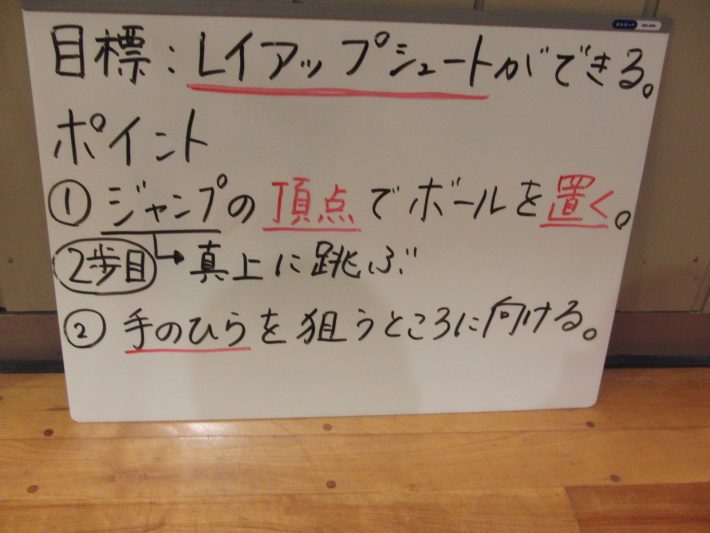 目標：レイアップシュートができる。
ポイント
① ジャンプの頂点でボールを置く。
2歩目 → 真上に跳ぶ
② 手のひらを狙うところに向ける。